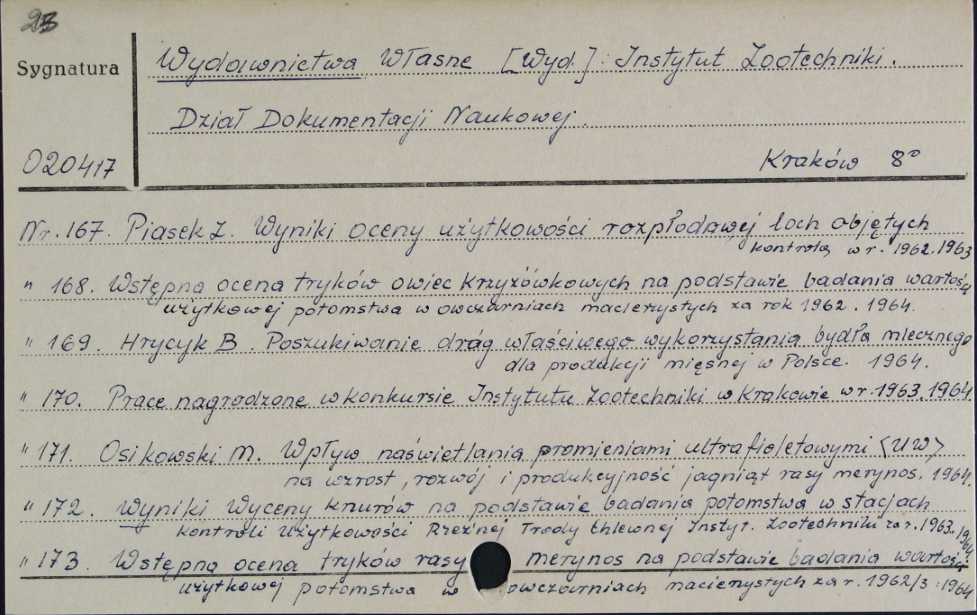 23
Sygnatura
Wydawnictwa Własne [Wyd.]: Instytut Zootechniki.
Dział Dokumentacji Naukowej.
020417
Kraków 8°
Nr. 167. Piasek Z. Wyniki oceny użytkowości rozpłodowej loch objętych
kontrolą w r. 1962. 1963
" 168. Wstępna ocena tryków owiec krzyżówkowych na podstawie badania wartości
użytkowej potomstwa w owczarniach macierzystych za rok 1962. 1964.
" 169. Hrycyk B. Poszukiwanie dróg właściwego wykorzystania bydła mlecznego
dla produkcji mięsnej w Polsce. 1964.
" 170. Prace nagrodzone w konkursie Instytutu Zootechniki w Krakowie w r. 1963. 1964.
" 171. Osikowski M. Wpływ naświetlania promieniami ultrafioletowymi <UW>
na wzrost, rozwój i produkcyjność jagniąt rasy merynos. 1964.
" 172. Wyniki Wyceny knurów na podstawie badania potomstwa w stacjach
kontroli Użytkowości Rzeźnej Trzody Chlewnej Instyt. Zootechniki za r. 1963. 1964
" 173. Wstępna ocena tryków rasy merynos na podstawie badania wartości
użytkowej potomstwa w owczarniach macierzystych za r. 1962/3. 1964